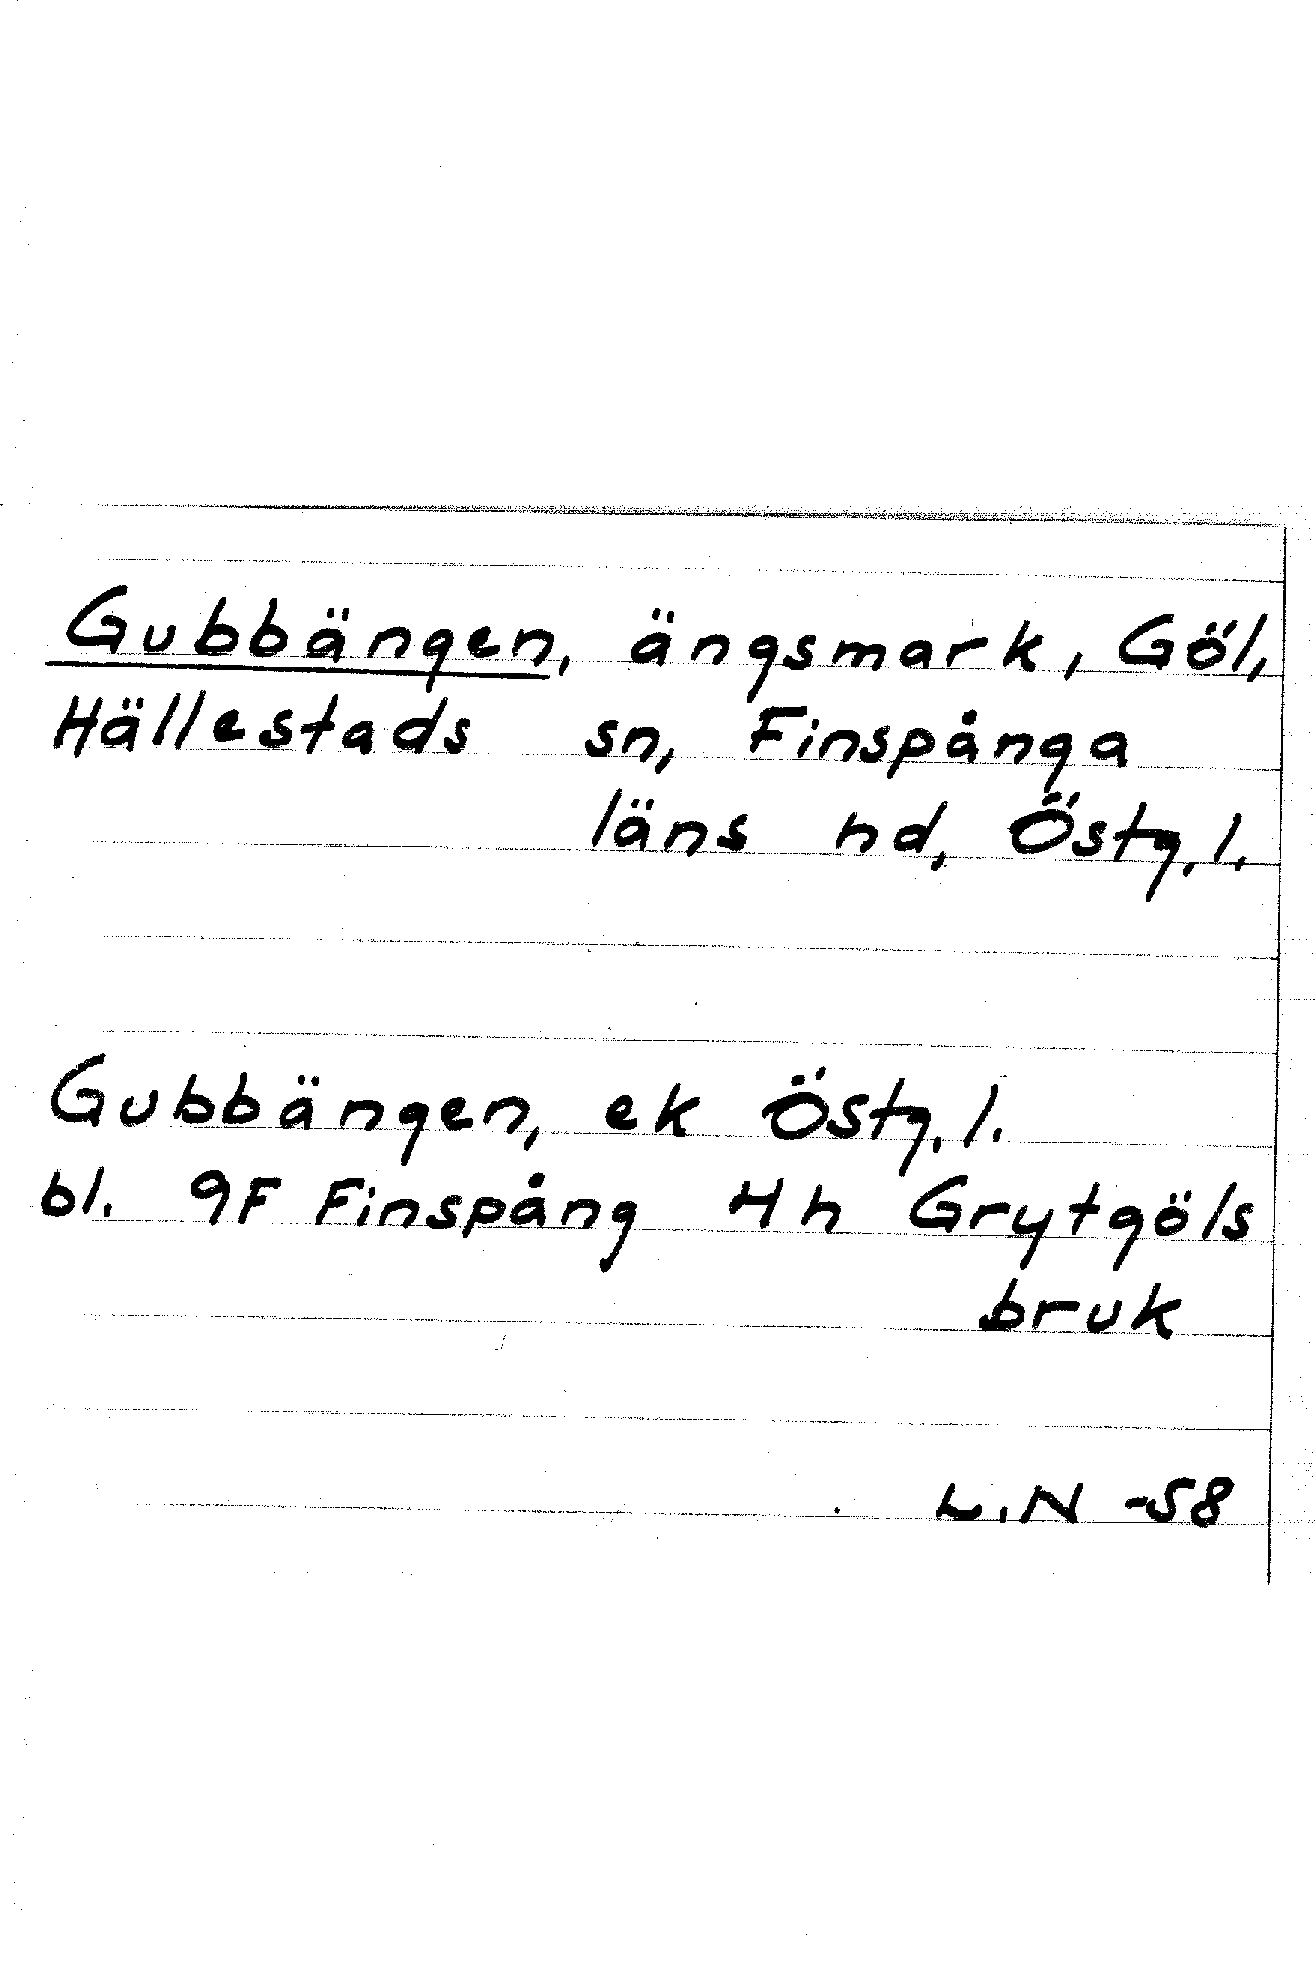 Gubbängen, ängsmark, Göl,
Hällestads sn, Finspånga
läns hd, Östg. l.
Gubbängen, ek Östg. l.
bl. 9F Finspång 4h Grytgöls
bruk
L.N -58